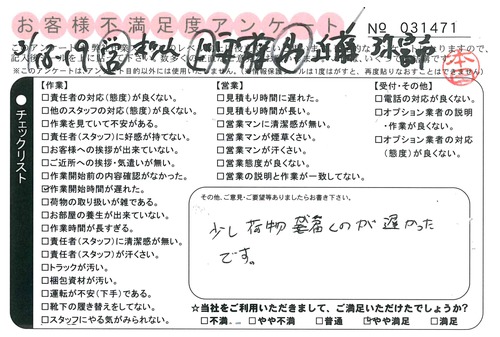 お客様不満足度アンケート
№ 031471
チェックリスト
【作業】
□責任者の対応(態度)が良くない。
□他のスタッフの対応(態度)が良くない。
□作業を見ていて不安がある。
□責任者(スタッフ)に好感が持てない。
□お客様への挨拶が出来ていない。
□ご近所への挨拶・気遣いが無い。
□作業開始前の内容確認がなかった。
☑作業開始時間が遅れた。
□荷物の取り扱いが雑である。
□お部屋の養生が出来ていない。
□作業時間が長すぎる。
□責任者(スタッフ)に清潔感が無い。
□責任者(スタッフ)が汗くさい。
□トラックが汚い。
□梱包資材が汚い。
□運転が不安(下手)である。
□靴下の履き替えをしてない。
□スタッフにやる気がみられない。
【営業】
□見積もり時間に遅れた。
□見積もり時間が長い。
□営業マンに清潔感が無い。
□営業マンが煙草くさい。
□営業マンが汗くさい。
□営業態度が良くない。
□営業の説明と作業が一致してない。
【受付・その他】
□電話の対応が良くない。
□オプション業者の説明
・作業が良くない。
□オプション業者の対応
(態度)が良くない。
その他、ご意見・ご要望等ありましたらお書き下さい。
少し荷物 着くのが 遅かった
です。
☆当社をご利用いただきまして、ご満足いただけたでしょうか?
□不満 □やや不満 □普通 ☑やや満足 □満足